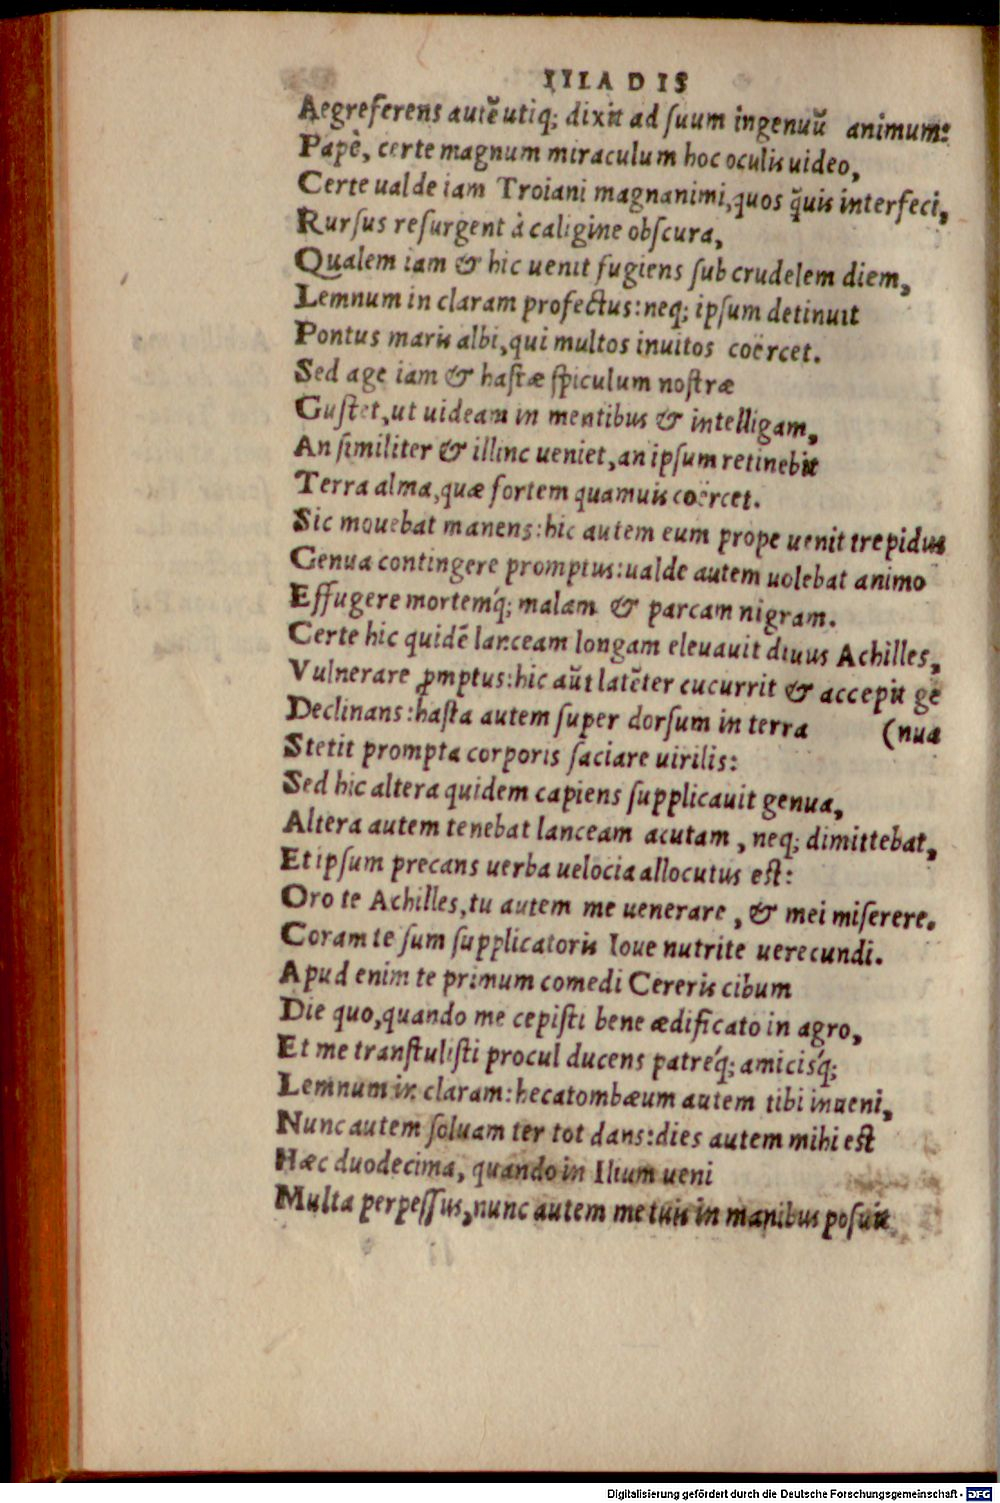 IILADIS
Aegreferens autē utiq; dixit ad ſuum ingenuū animum:
Papè, certe magnum miraculum hoc oculis uideo,
Certe ualde iam Troiani magnanimi, quos q̃uis interfeci,
Rurſus reſurgent à caligine obſcura,
Qualem iam & hic uenit fugiens ſub crudelem diem,
Lemnum in claram profectus: neq; ipſum detinuit
Pontus maris albi, qui multos inuitos coërcet.
Sed age iam & haſtæ ſpiculum noſtræ
Guſtet, ut uideam in mentibus & intelligam,
An ſimiliter & illinc ueniet, an ipſum retinebit
Terra alma, quæ fortem quamuis coërcet.
Sic mouebat manens: hic autem eum prope uenit trepidus
Genua contingere promptus: ualde autem uolebat animo
Effugere mortemq́; malam & parcam nigram.
Certe hic quidē lanceam longam eleuauit diuus Achilles,
Vulnerare ꝓmptus: hic aūt latēter cucurrit & accepit ge
Declinans: haſta autem ſuper dorſum in terra (nua
Stetit prompta corporis ſaciare uirilis:
Sed hic altera quidem capiens ſupplicauit genua,
Altera autem tenebat lanceam acutam, neq; dimittebat,
Et ipſum precans uerba uelocia allocutus eſt:
Oro te Achilles, tu autem me uenerare, & mei miſerere.
Coram te ſum ſupplicatoris Ioue nutrite uerecundi.
Apud enim te primum comedi Cereris cibum
Die quo, quando me cepiſti bene ædificato in agro,
Et me tranſtuliſti procul ducens patreq́; amicisq́;
Lemnum in claram: hecatombæum autem tibi inueni,
Nunc autem ſoluam ter tot dans: dies autem mihi eſt
Hæc duodecima, quando in Ilium ueni
Multa perpeſſus, nunc autem me tuis in manibus poſuit
Digitalisierung gefördert durch die Deutsche Forschungsgemeinschaft - DFG